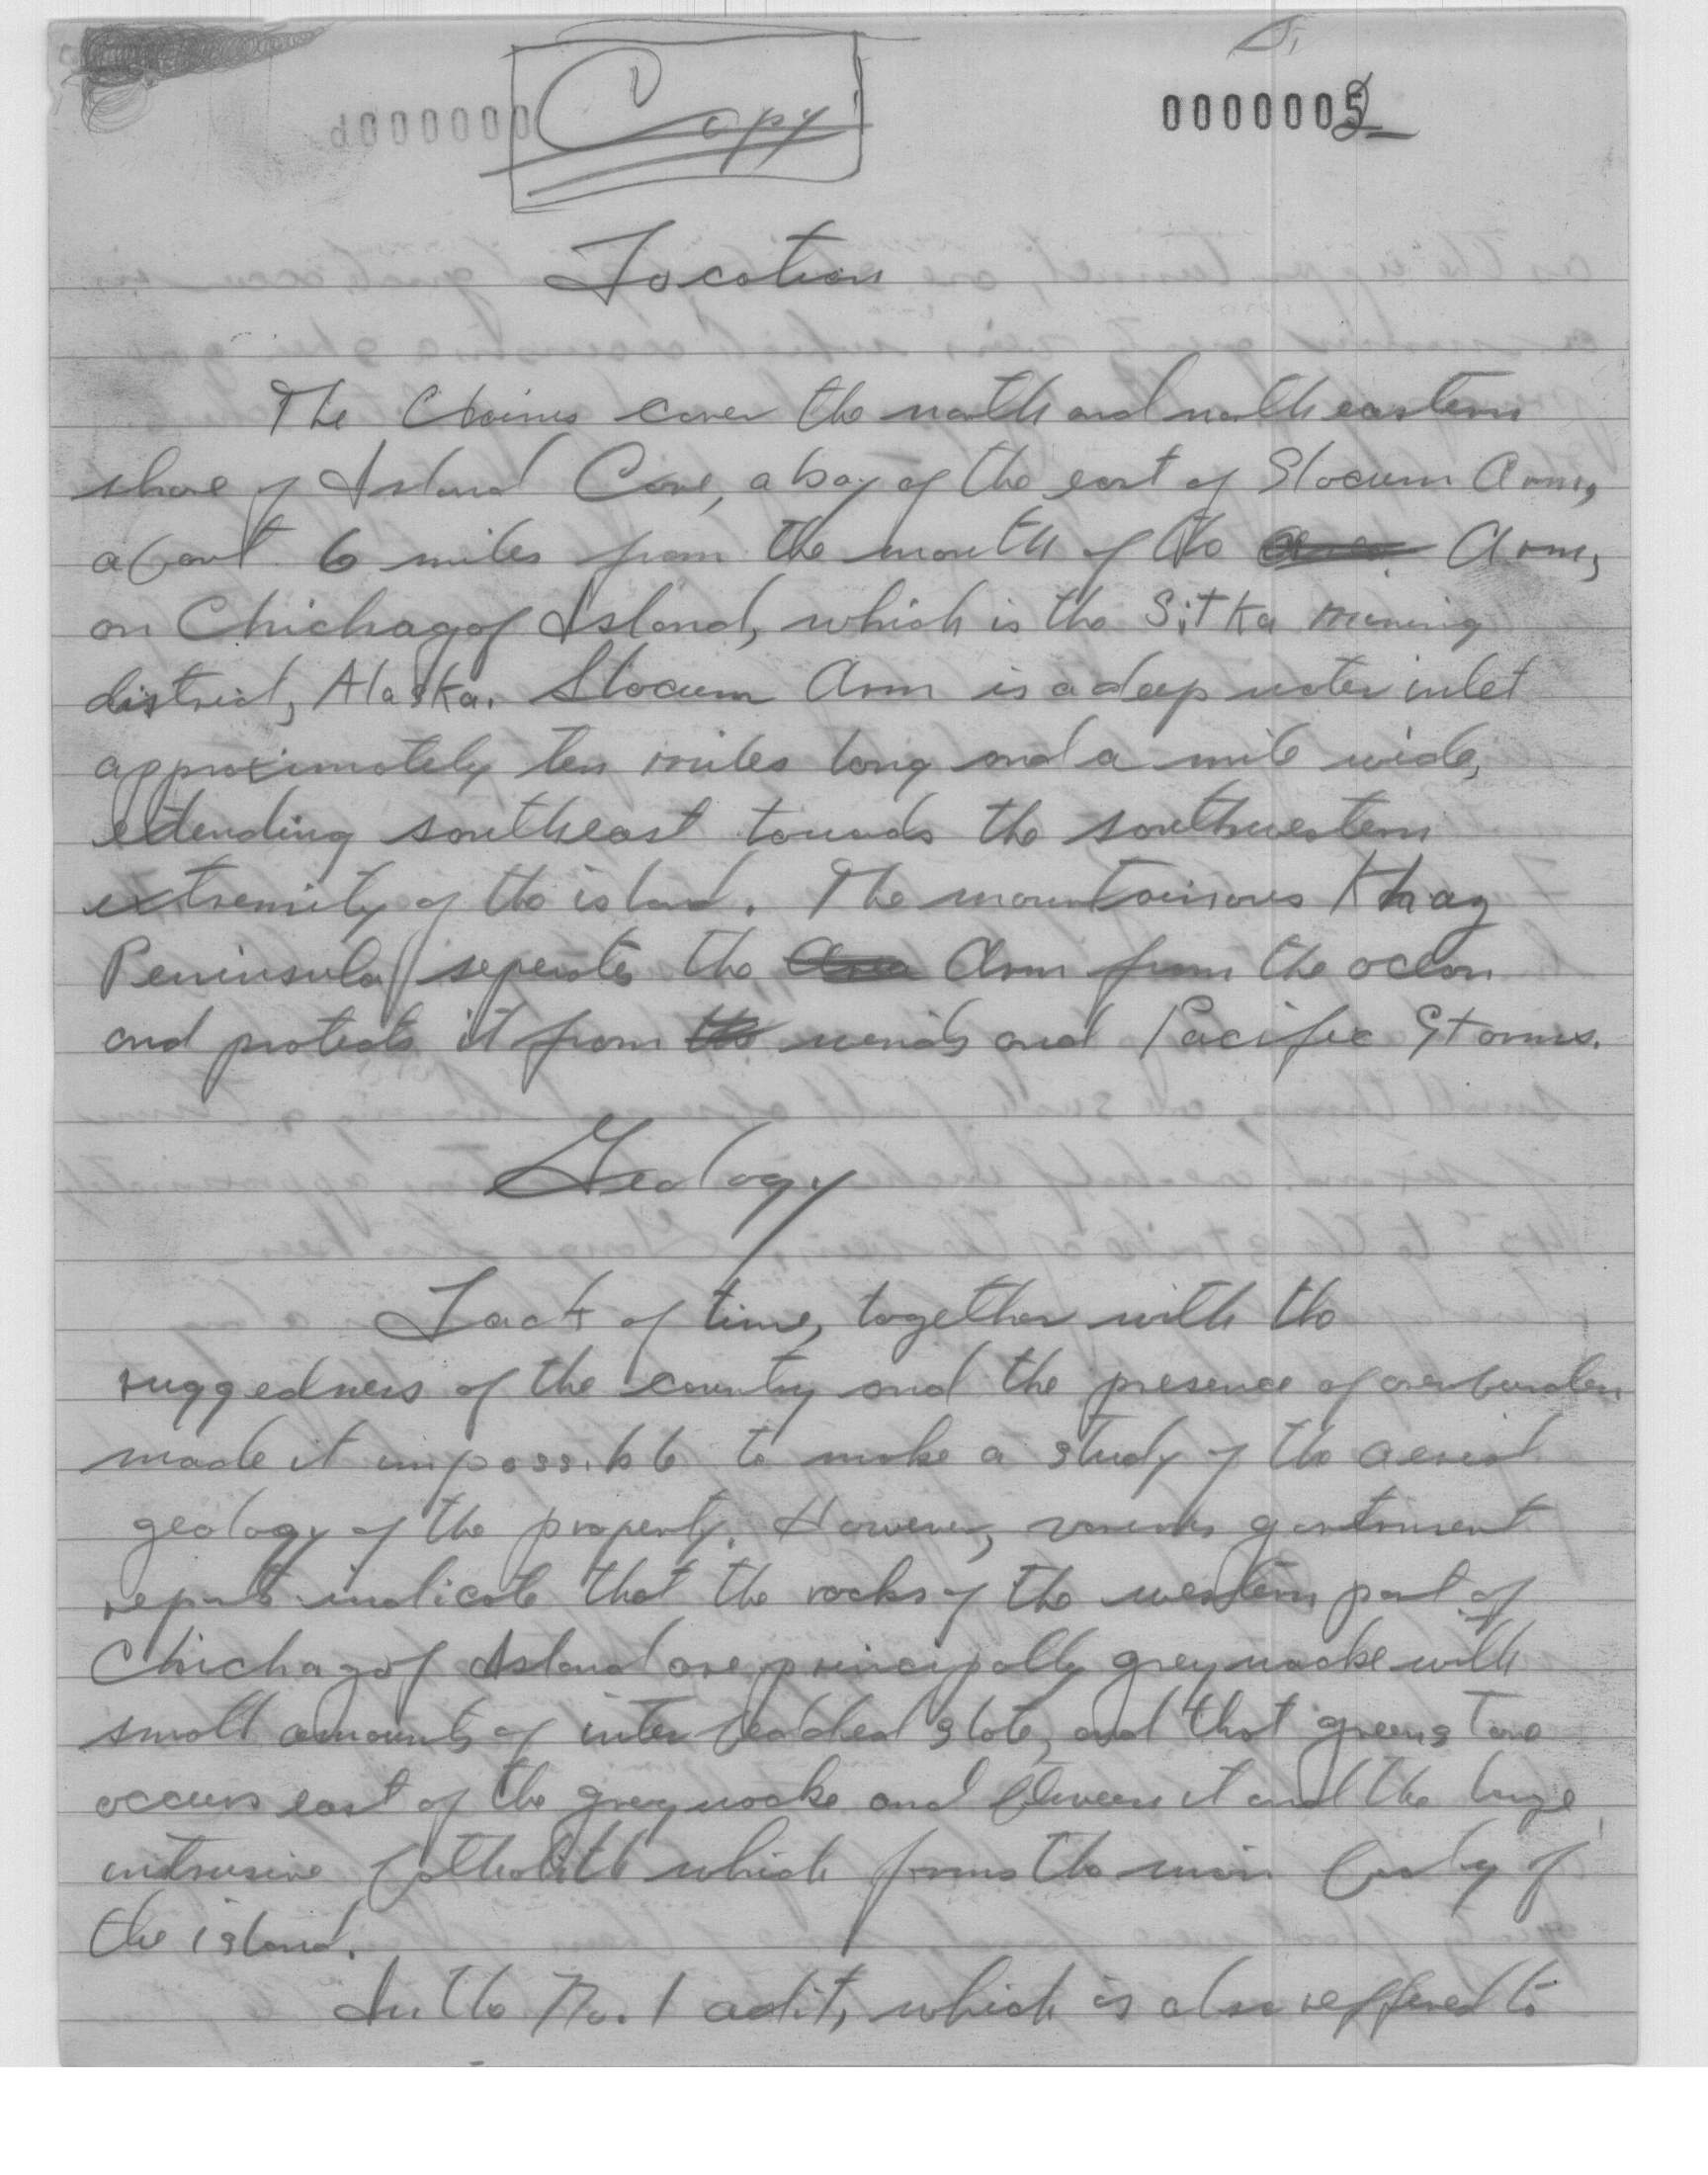 Copy
0000005
Location
The Claims cover the north and northeastern
shore of Island Cove, a bay of the east of Slocum Arm,
about 6 miles from the mouth of the Arm,
on Chichagof Island, which is the Sitka mining
district, Alaska. Slocum Arm is a deep water inlet
approximately ten miles long and a mile wide,
extending southeast towards the southwestern
extremity of the island. The mountainous Khaz
Peninsula seperates the Area Arm from the ocean
and protects it from the winds and Pacific Storms.
Geology
Lack of time, together with the
ruggedness of the country and the presence of overburden
made it impossible to make a study of the aerial
geology of the property. However, various government
reports indicate that the rocks of the western part of
Chichagof Island are principally greywacke with
small amounts of interbedded slate, and that greenstone
occurs east of the greywacke and between it and the large
intrusive batholith which forms the main body of
the island.
In the No. 1 adit, which is also reffered to